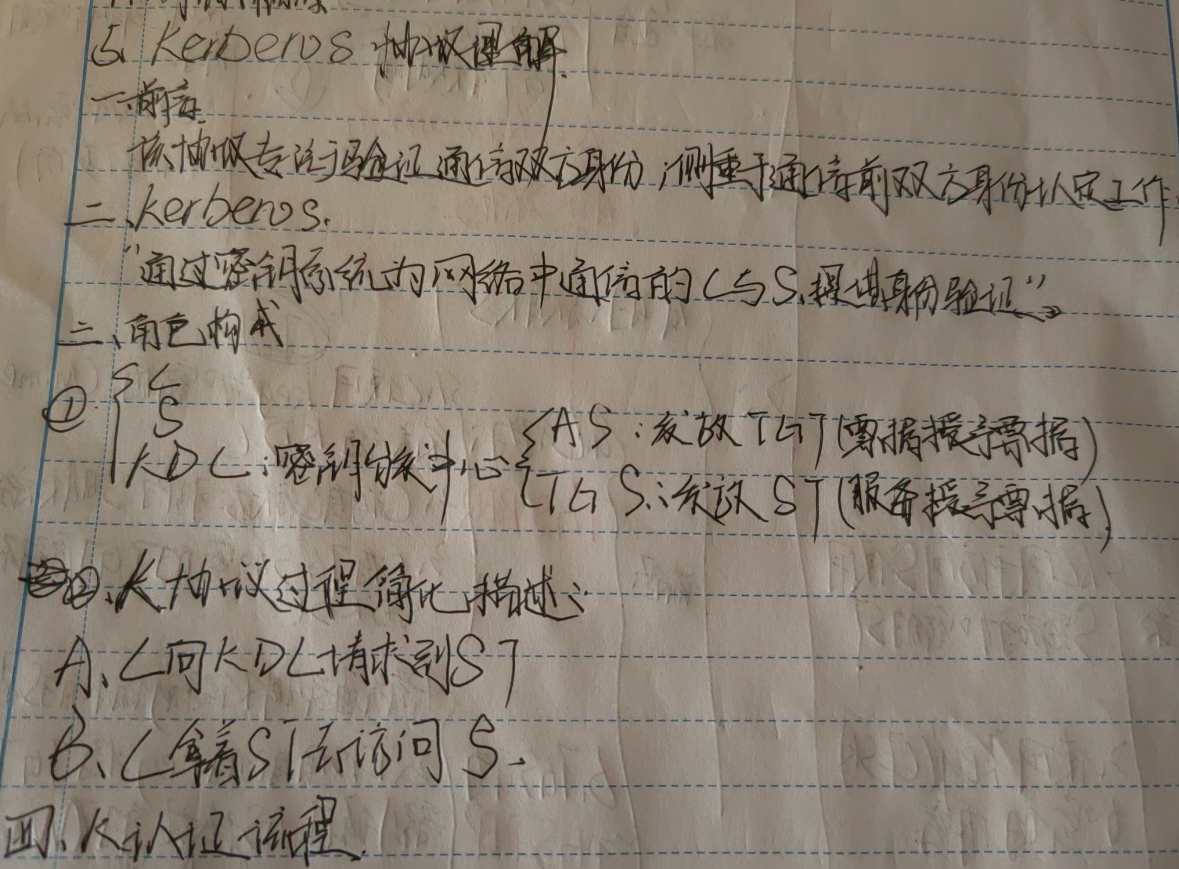 5. Kerberos 协议理解.
一.前言.
该协议专注于验证通信双方身份,侧重于通信前双方身份认定工作.
二、Kerberos.
"通过密钥系统为网络中通信的C与S,提供身份验证"
三、角色构成
① { C
S
KDC:密钥分发中心 { AS:发放TGT(票据授予票据)
TGS:发放ST(服务授予票据)
②、K协议过程简化描述:
A、C向KDC请求到ST
B、C拿着ST去访问S.
四、K认证流程.